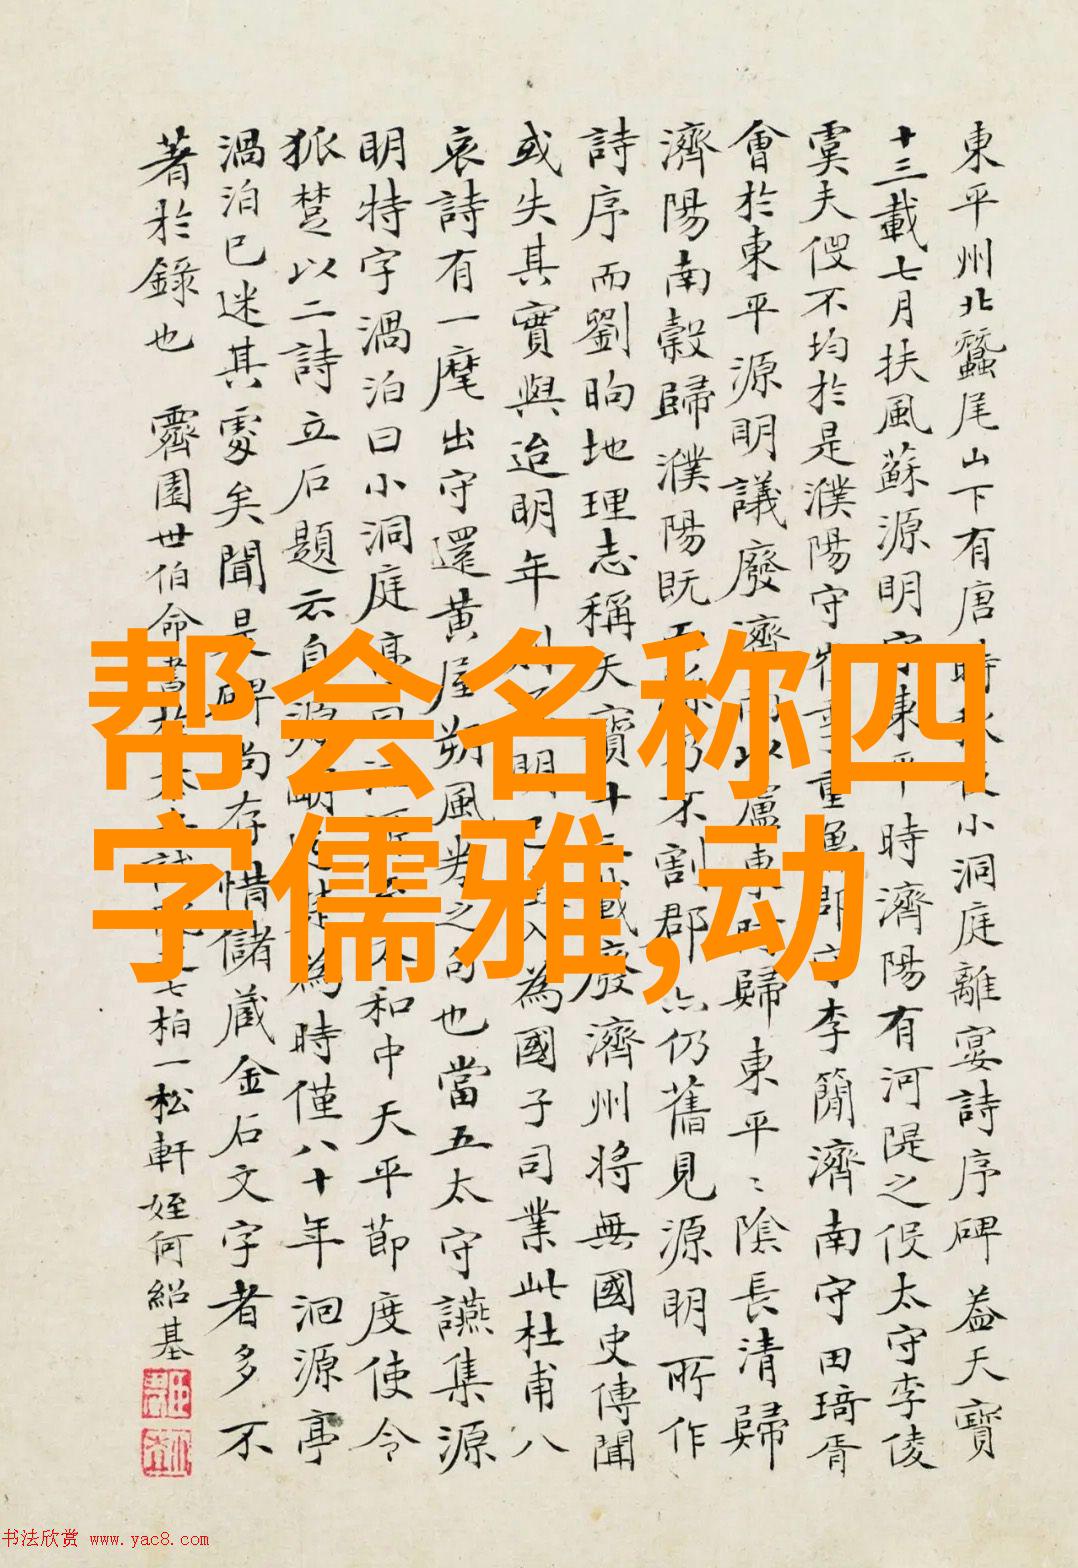 東平州北蠶尾山下有唐時小洞庭離宴詩序碑 蓋天寶
十三載七月扶風蘇源明守東平時濟陽有河隄之役太守李倰
虞夫役不均於是濮陽守李簡濟南守田琦胥
會於東平源明議廢濟東平陰長清歸
濟陽南穀歸濮陽既不割郡亦仍舊見源明所作
詩序而劉昫地理志稱天寶十三載廢濟州將無國史傳聞
或失其實與迨明年明入為國子司業此杜甫八
哀詩有一麾出守還黃屋朔風也當五太守讌集源
明特字渦泊曰小洞庭和中天平節度使令
狐楚以二詩立石題云自源明為時僅八十年洄源亭
渦泊已迷其處矣聞是碑尚存惜儲藏金石文字者多不
著於錄也 霽園世伯命書柏一松軒 姪何紹基
帮会名称四
字儒雅,动
书法欣赏 www.yac8.com